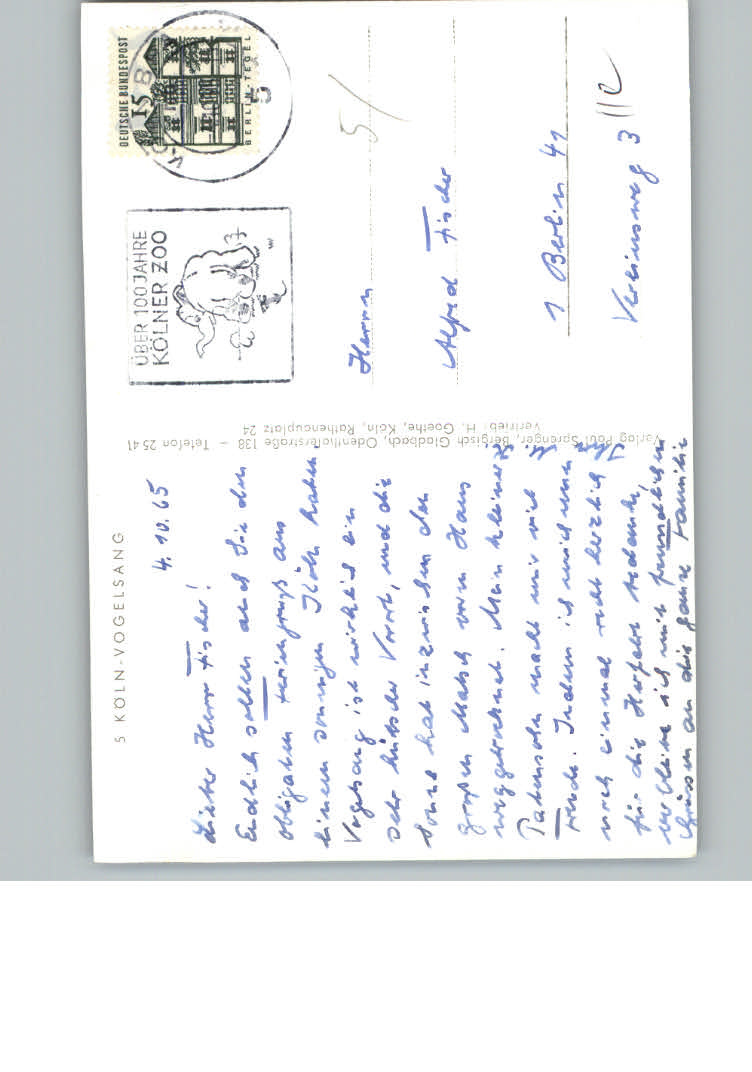 5 KÖLN-VOGELSANG
4.10.65
Lieber Herr Fischer!
Endlich sollen auch Sie den
obligaten Feriengruß aus
einem sonnigen Köln haben.
Vogelsang ist wirklich ein
sehr hübscher Vorort, und die
Sonne hat inzwischen den
großen Matsch vorm Haus
weggetrocknet. Mein kleiner
Patensohn macht mir viel
Freude. Indem ich mich nun
noch einmal recht herzlich
für die Herfahrt bedanke,
verbleibe ich mit freundlichen
Grüssen an die ganze Familie
Ihre
Verlag Paul Sprenger, Bergisch Gladbach, Odenthalerstraße 138 – Telefon 25 41
Vertrieb: H. Goethe, Köln, Rathenauplatz 24
ÜBER 100 JAHRE
KÖLNER ZOO
DEUTSCHE BUNDESPOST
15
BERLIN-TEGEL
5
Herrn
Alfred Fischer
1 Berlin 41
Vereinsweg 3